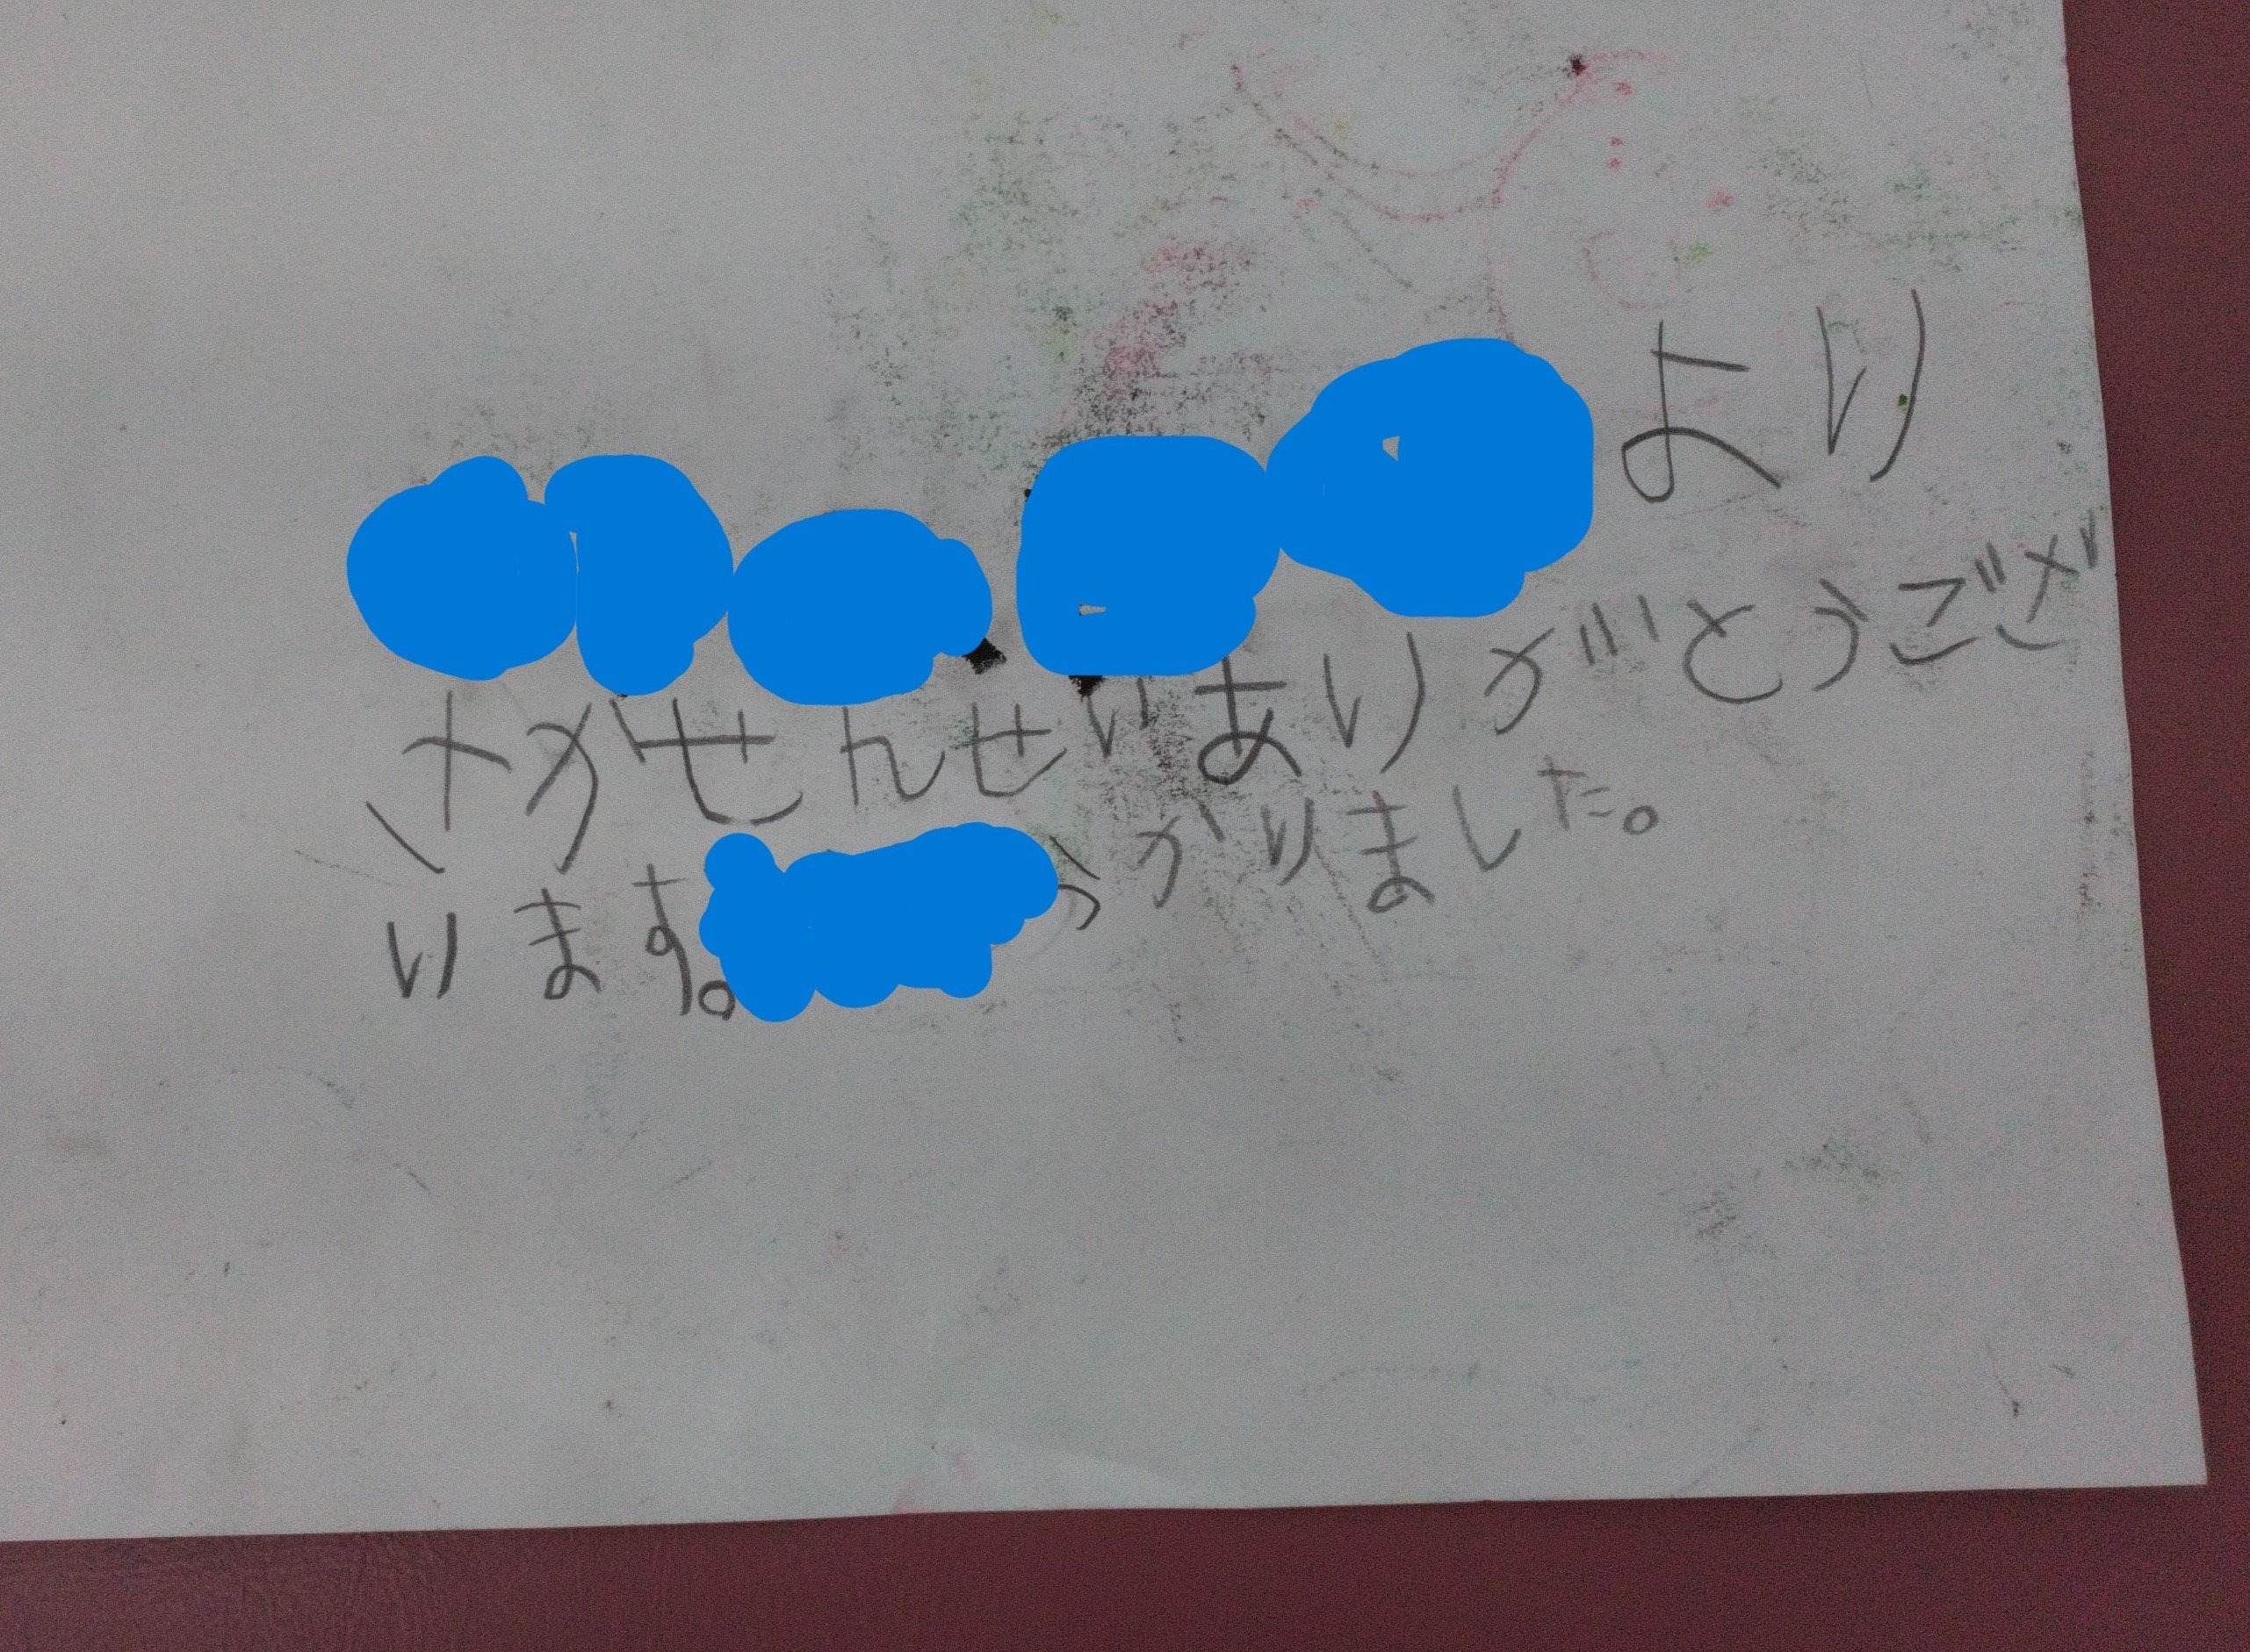 より
さかせんせいありがとうござ
います。 かりました。